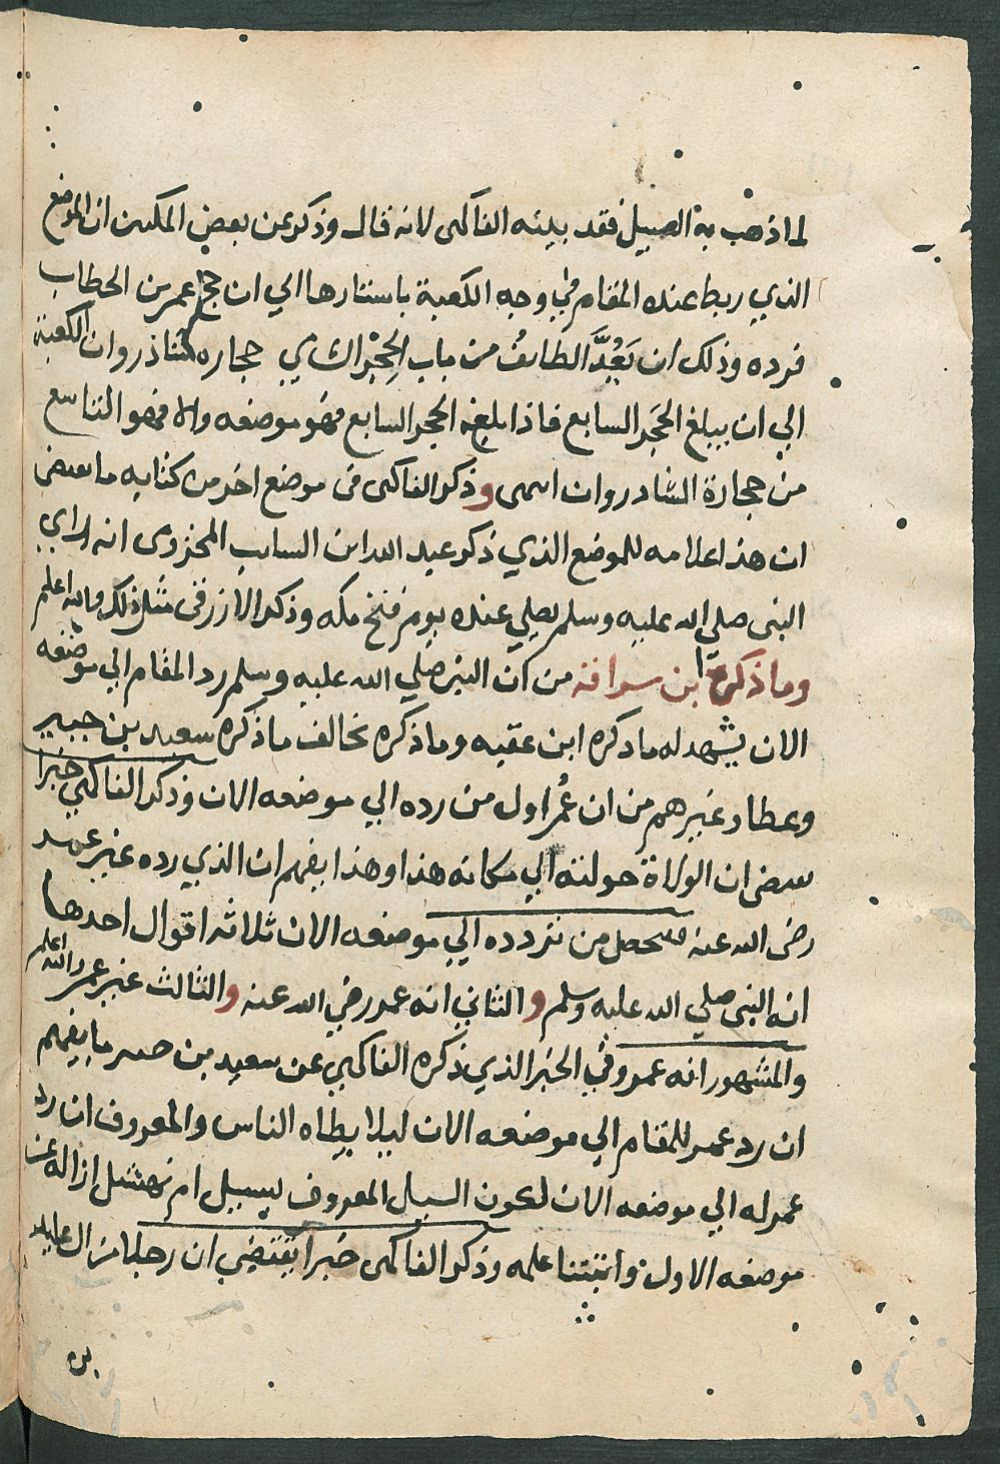 لما ذهب به السبيل فقد بينه الفاكهى لانه قال وذكر عن بعض المكيين ان الموضع
الذي ربط عنده المقام في وجه الكعبة باستارها الي ان حج عمر بن الخطاب
فرده وذلك ان يَعُدَّ الطائف من باب الحِجْر الشامي حجارة شاذروان الكعبة
الي ان يبلغ الحَجَر السابع فاذا بلغ الحجر السابع فهو موضعه والا فهو التاسع
من حجارة الشادروان اسهى وذكر الفاكهى فى موضع اخر من كتابه ما يقتضى
ان هذا علامه للموضع الذي ذكر عبد الله ابن السايب المخزومى انه راي
النبى صلي الله عليه وسلم يصلي عنده يوم فتح مكه وذكر الازرقى مثل ذلك والله اعلم
وما ذكره ابن سراقة من ان النبي صلي الله عليه وسلم رد المقام الي موضعه
الان يشهد له ما ذكره ابن عقبه وما ذكره يخالف ما ذكره سعيد بن جبير
وعطا وغيرهم من ان عُمر اول من رده الي موضعه الان وذكر الفاكهي خبرا
يقتضى ان الولاة حولته الي مكانه هذا وهذا يفهم ان الذي رده غير عمر
رضى الله عنه فتحصل من تردده الي موضعه الان ثلاثه اقوال احدها
انه النبى صلي الله عليه وسلم والثاني انه عمر رضي الله عنه والثالث غير عمر والله اعلم
والمشهور انه عمر وفي الخبر الذي ذكره الفاكهي عن سعيد بن جبير ما يفهم
ان رد عمر للمقام الي موضعه الان ليلا يطاه الناس والمعروف ان رد
عمر له الي موضعه الان لكون السيل المعروف بسيل ام نهشل ازاله عن
موضعه الاول واثبتنا علمه وذكر الفاكهى خبرا يقتضي ان رجلا من ال عايد
بن